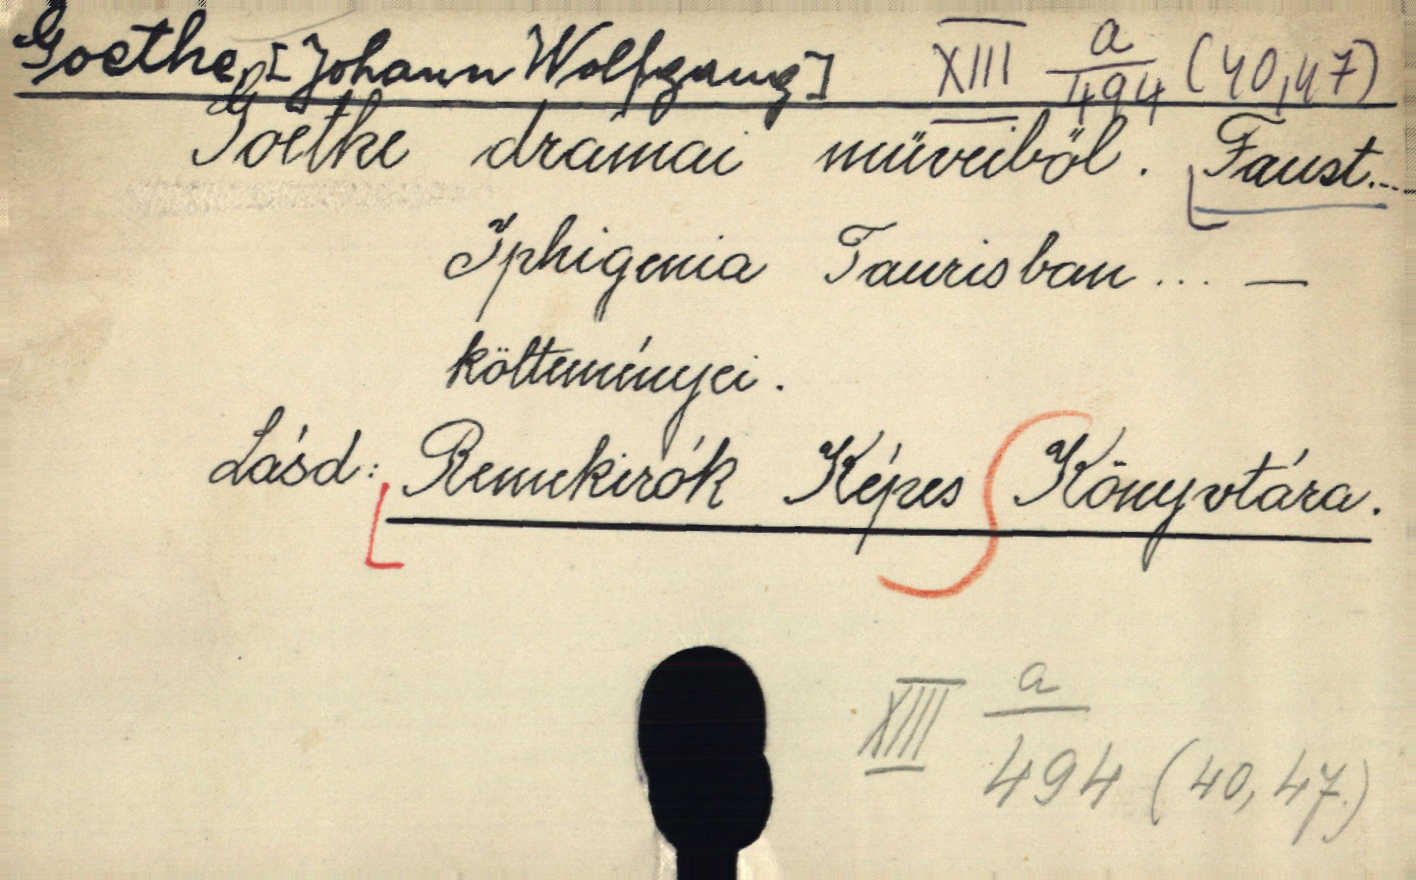 Goethe, [Johann Wolfgang] XIII a/494 (40,47)
Goethe drámai müveiböl. Faust...
Iphigenia Taurisban ... —
költeményei.
Lásd: Remekirók Képes Könyvtára.
XIII a/494 (40,47.)